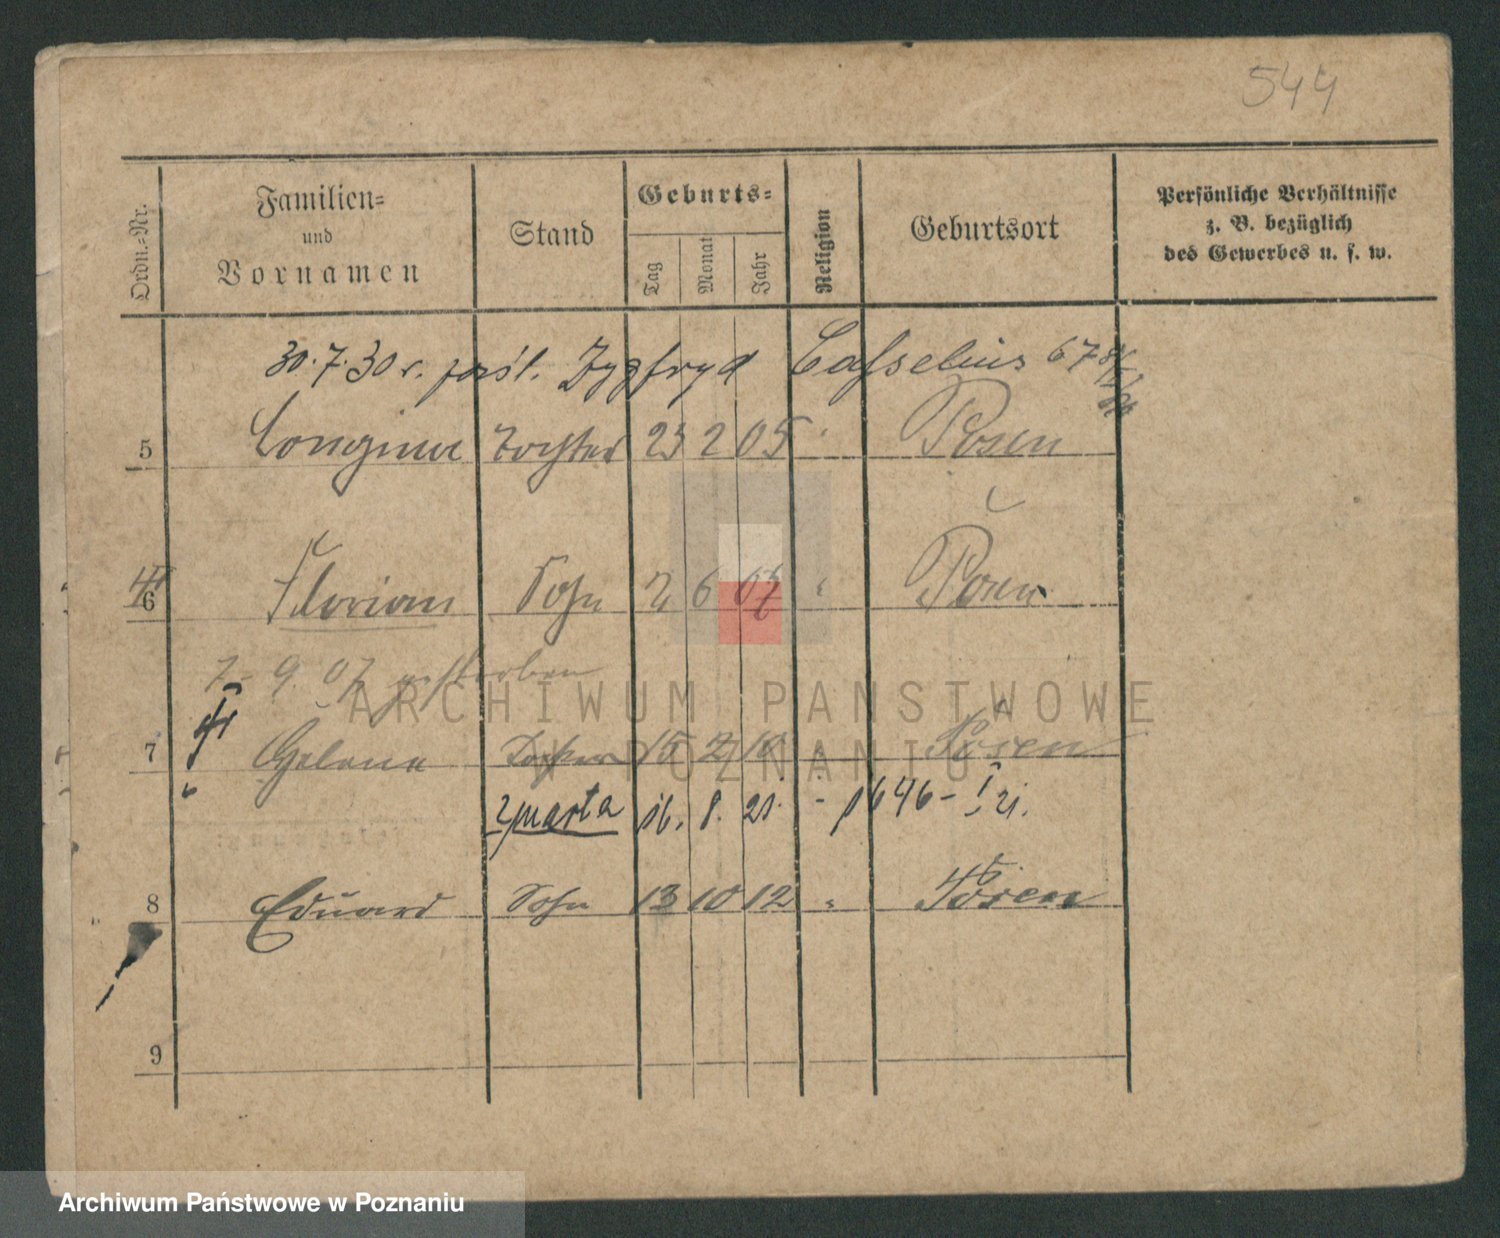 544
Ordn.-Nr. Familien- und Vornamen Stand Geburts- Tag Monat Jahr Religion Geburtsort Persönliche Verhältnisse z. B. bezüglich des Gewerbes u. s. w.
30.7.30 r. Zygfryd Casselius 678
5 Longina Tochter 23 2 05 Posen
6 Florian Sohn 2 6 07 Posen
7. 9. 07 gestorben
7 Helena Tochter 15 2 10 Posen
zmarła 16. 8. 21. - 1646 - I 21.
8 Eduard Sohn 13 10 12 " Posen
9
ARCHIWUM PANSTWOWE
W POZNANIU
Archiwum Państwowe w Poznaniu